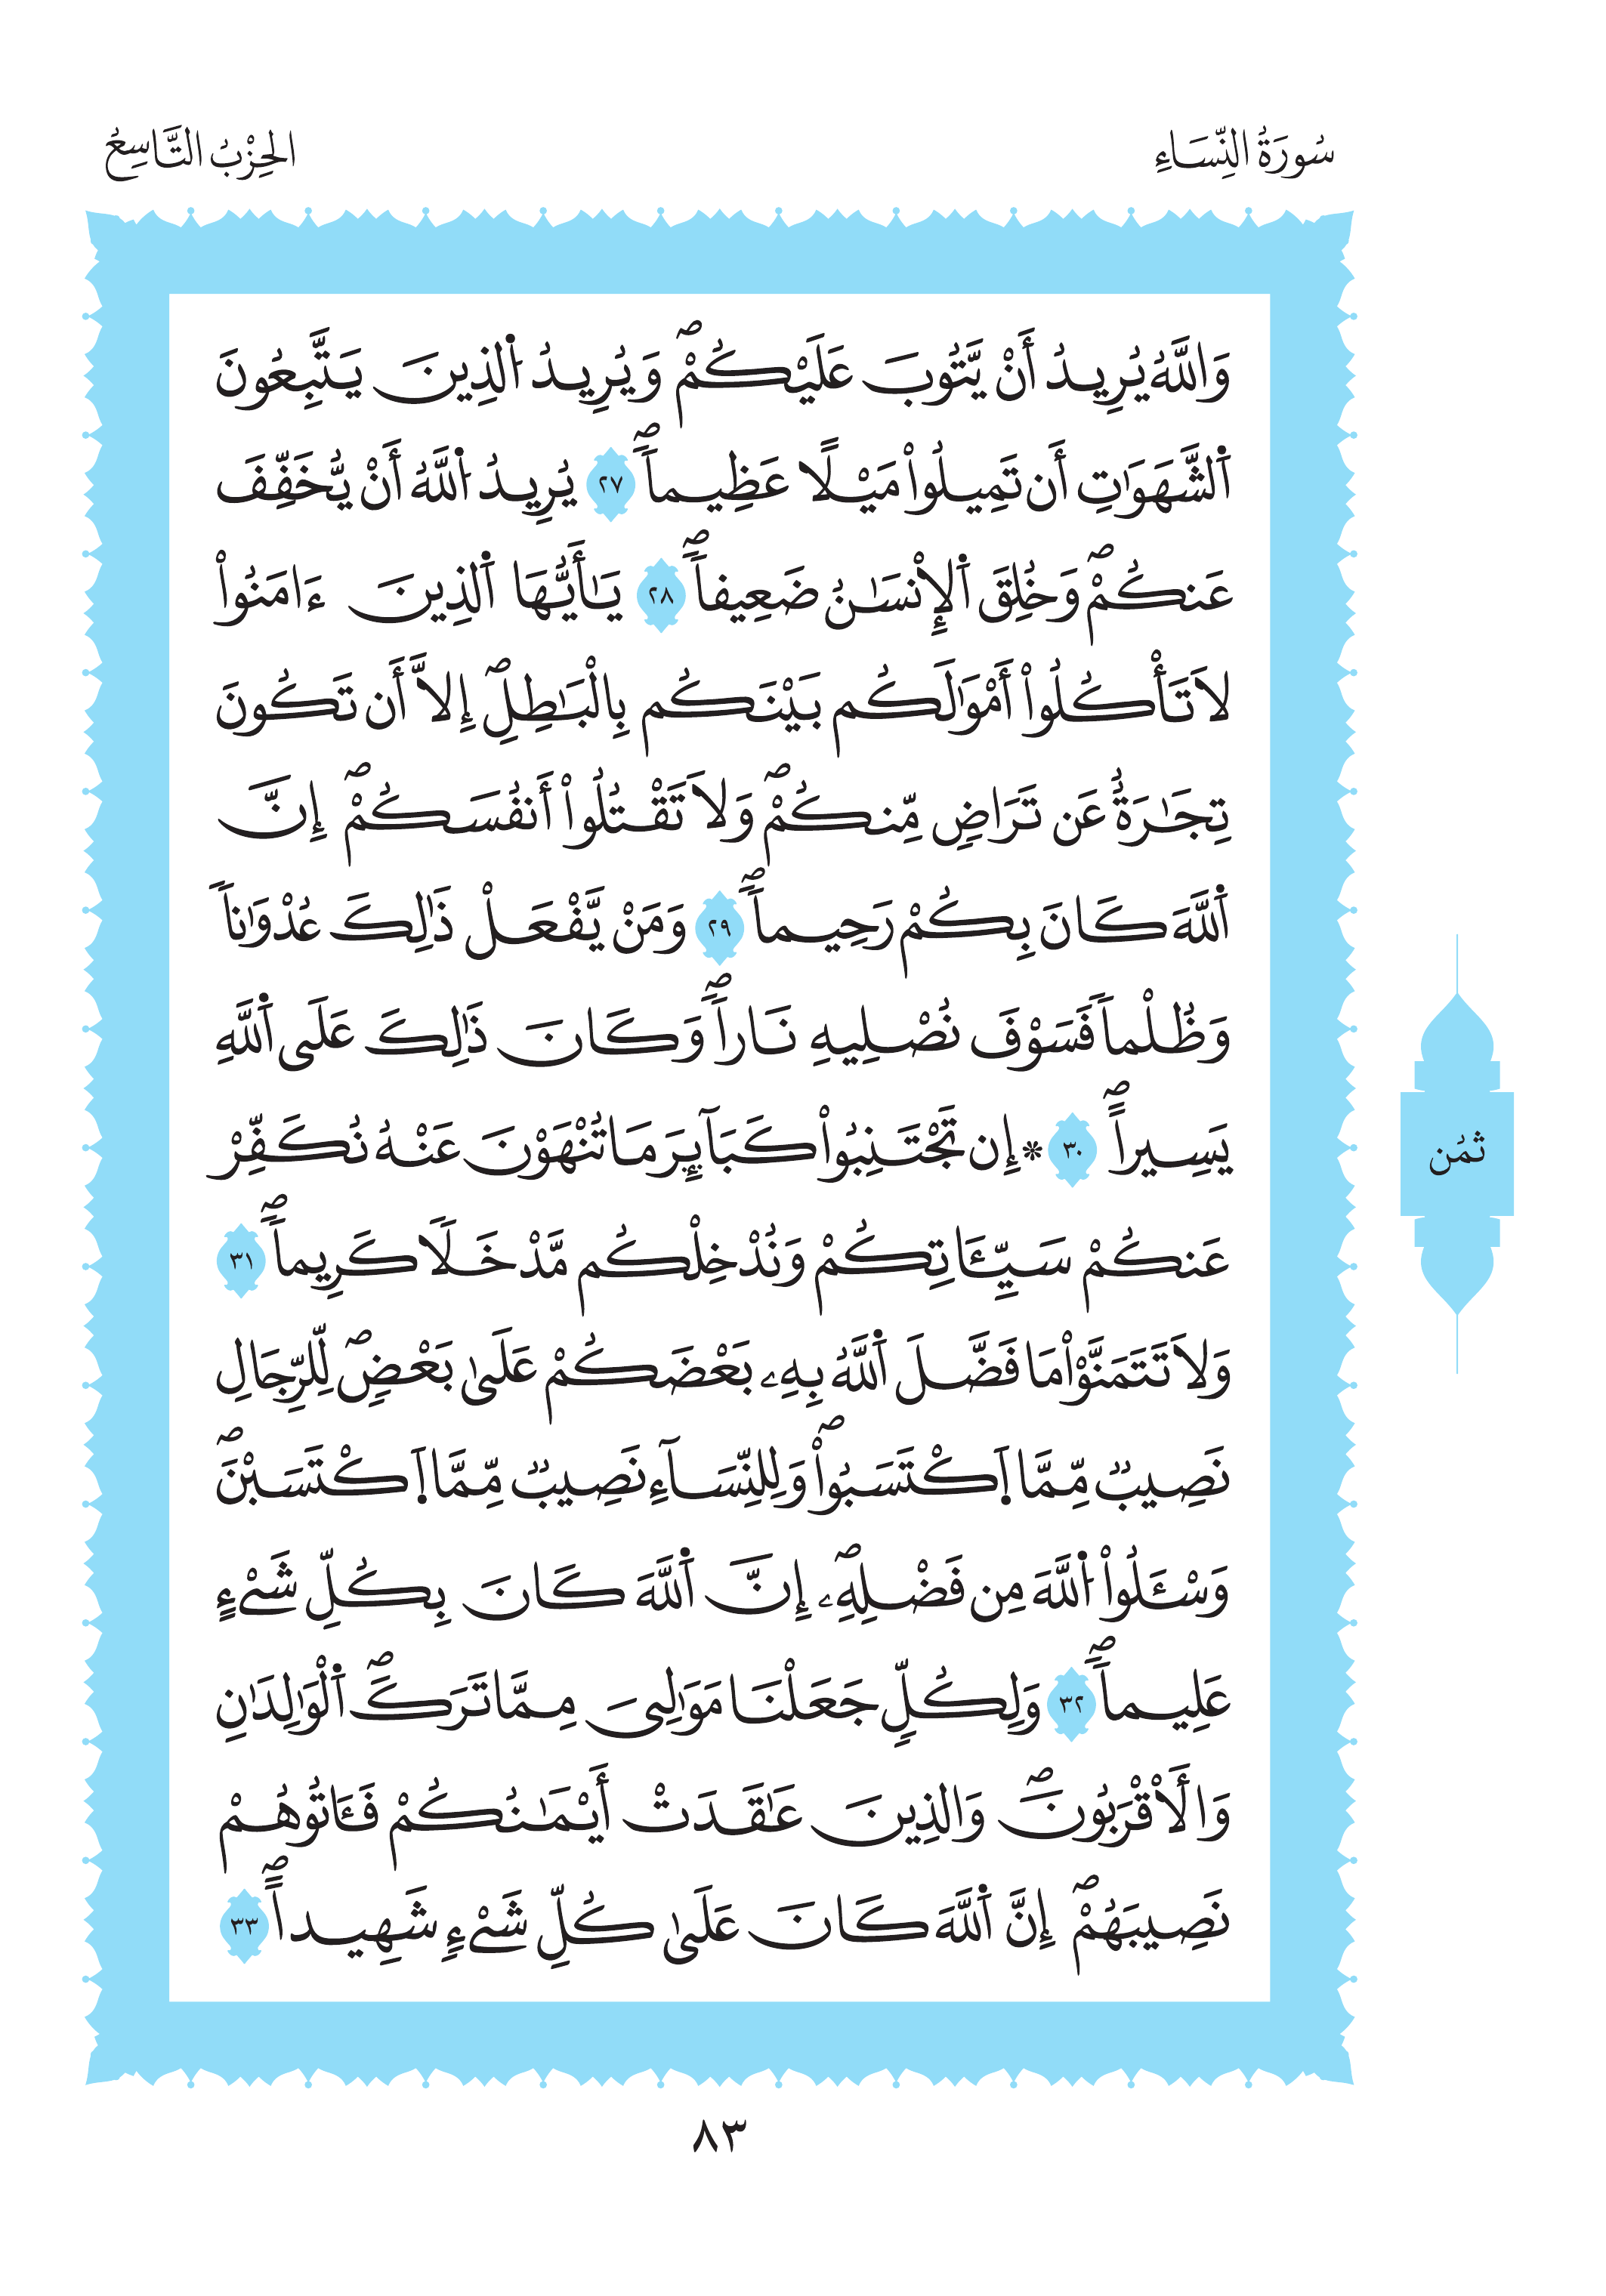 سُورَةُ النِّسَاءِ
الحِزْبُ التَّاسِعُ
وَاللَّهُ يُرِيدُ أَنْ يَّتُوبَ عَلَيْكُمْ ؐ وَيُرِيدُ اُ۬لذِينَ يَتَّبِعُونَ
اَ۬لشَّهَوَٰتِ أَن تَمِيلُواْ مَيْلًا عَظِيماٗ ؐ ٢٧ يُرِيدُ اُ۬للَّهُ أَنْ يُّخَفِّفَ
عَنكُمْ ؐ وَخُلِقَ اَ۬لِانْسَٰنُ ضَعِيفاٗ ؐ ٢٨ يَٰأَيُّهَا اَ۬لذِينَ ءَامَنُواْ
لَا تَأْكُلُواْ أَمْوَٰلَكُم بَيْنَكُم بِالْبَٰطِلِ ؐ إِلَّا أَن تَكُونَ
تِجَٰرَةٌ عَن تَرَاضٖ مِّنكُمْ ؐ وَلَا تَقْتُلُواْ أَنفُسَكُمْ ؐ إِنَّ
اَ۬للَّهَ كَانَ بِكُمْ رَحِيماٗ ؐ ٢٩ وَمَنْ يَّفْعَلْ ذَٰلِكَ عُدْوَٰناٗ
وَظُلْماٗ فَسَوْفَ نُصْلِيهِ نَاراٗ ؐ وَكَانَ ذَٰلِكَ عَلَى اَ۬للَّهِ
يَسِيراً ؐ ٣٠ * إِن تَجْتَنِبُواْ كَبَآئِرَ مَا تُنْهَوْنَ عَنْهُ نُكَفِّرْ
عَنكُمْ سَيِّـَٔاتِكُمْ وَنُدْخِلْكُم مَّدْخَلٗا كَرِيماٗ ؐ ٣١
وَلَا تَتَمَنَّوْاْ مَا فَضَّلَ اَ۬للَّهُ بِهِۦ بَعْضَكُمْ عَلَىٰ بَعْضٖ ؐ لِّلرِّجَالِ
نَصِيبٞ مِّمَّا اَ۪كْتَسَبُواْ ؐ وَلِلنِّسَآءِ نَصِيبٞ مِّمَّا اَ۪كْتَسَبْنَ ؐ
وَسْـَٔلُواْ اُ۬للَّهَ مِن فَضْلِهِۦ ؐ إِنَّ اَ۬للَّهَ كَانَ بِكُلِّ شَيْءٍ
عَلِيماٗ ؐ ٣٢ وَلِكُلّٖ جَعَلْنَا مَوَٰلِيَ مِمَّا تَرَكَ ؐ اَ۬لْوَٰلِدَٰنِ
وَالَاقْرَبُونَ ؐ وَالذِينَ عَٰقَدَتْ أَيْمَٰنُكُمْ فَـَٔاتُوهُمْ
نَصِيبَهُمْ ؐ إِنَّ اَ۬للَّهَ كَانَ عَلَىٰ كُلِّ شَيْءٖ شَهِيداً ؐ ٣٣
ثمُن
٨٣